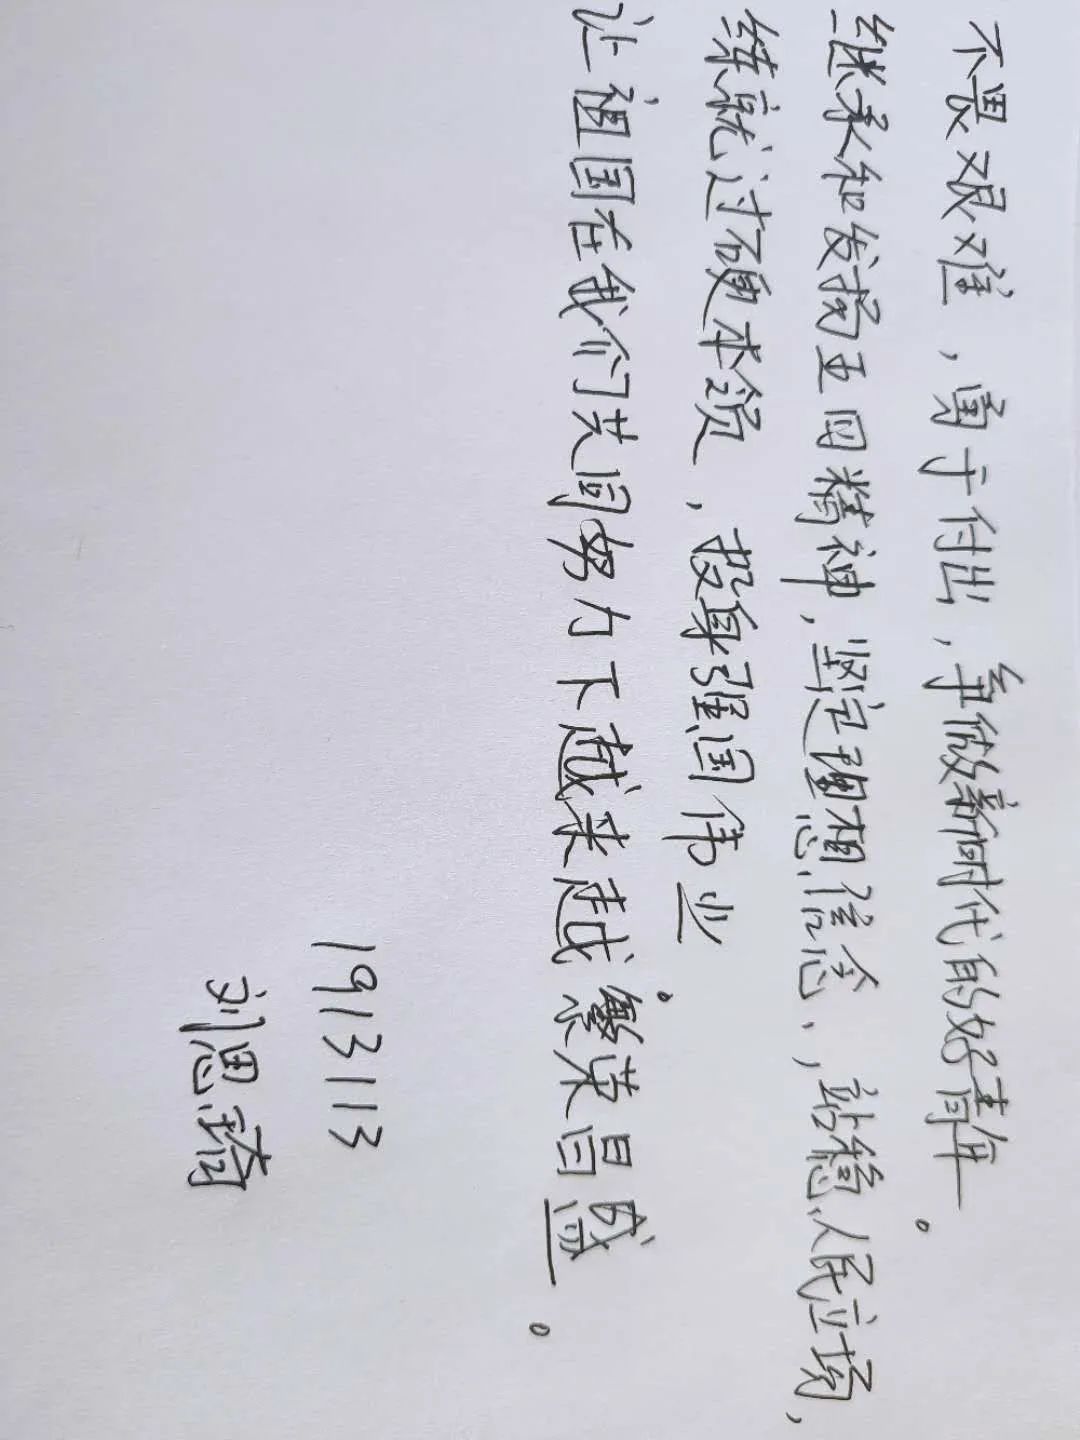 不畏艰难，勇于付出，争做新时代的好青年。
继承和发扬五四精神，坚定理想信念，站稳人民立场，
练就过硬本领，投身强国伟业。
让祖国在我们共同努力下越来越繁荣昌盛。
1913113
刘思琦